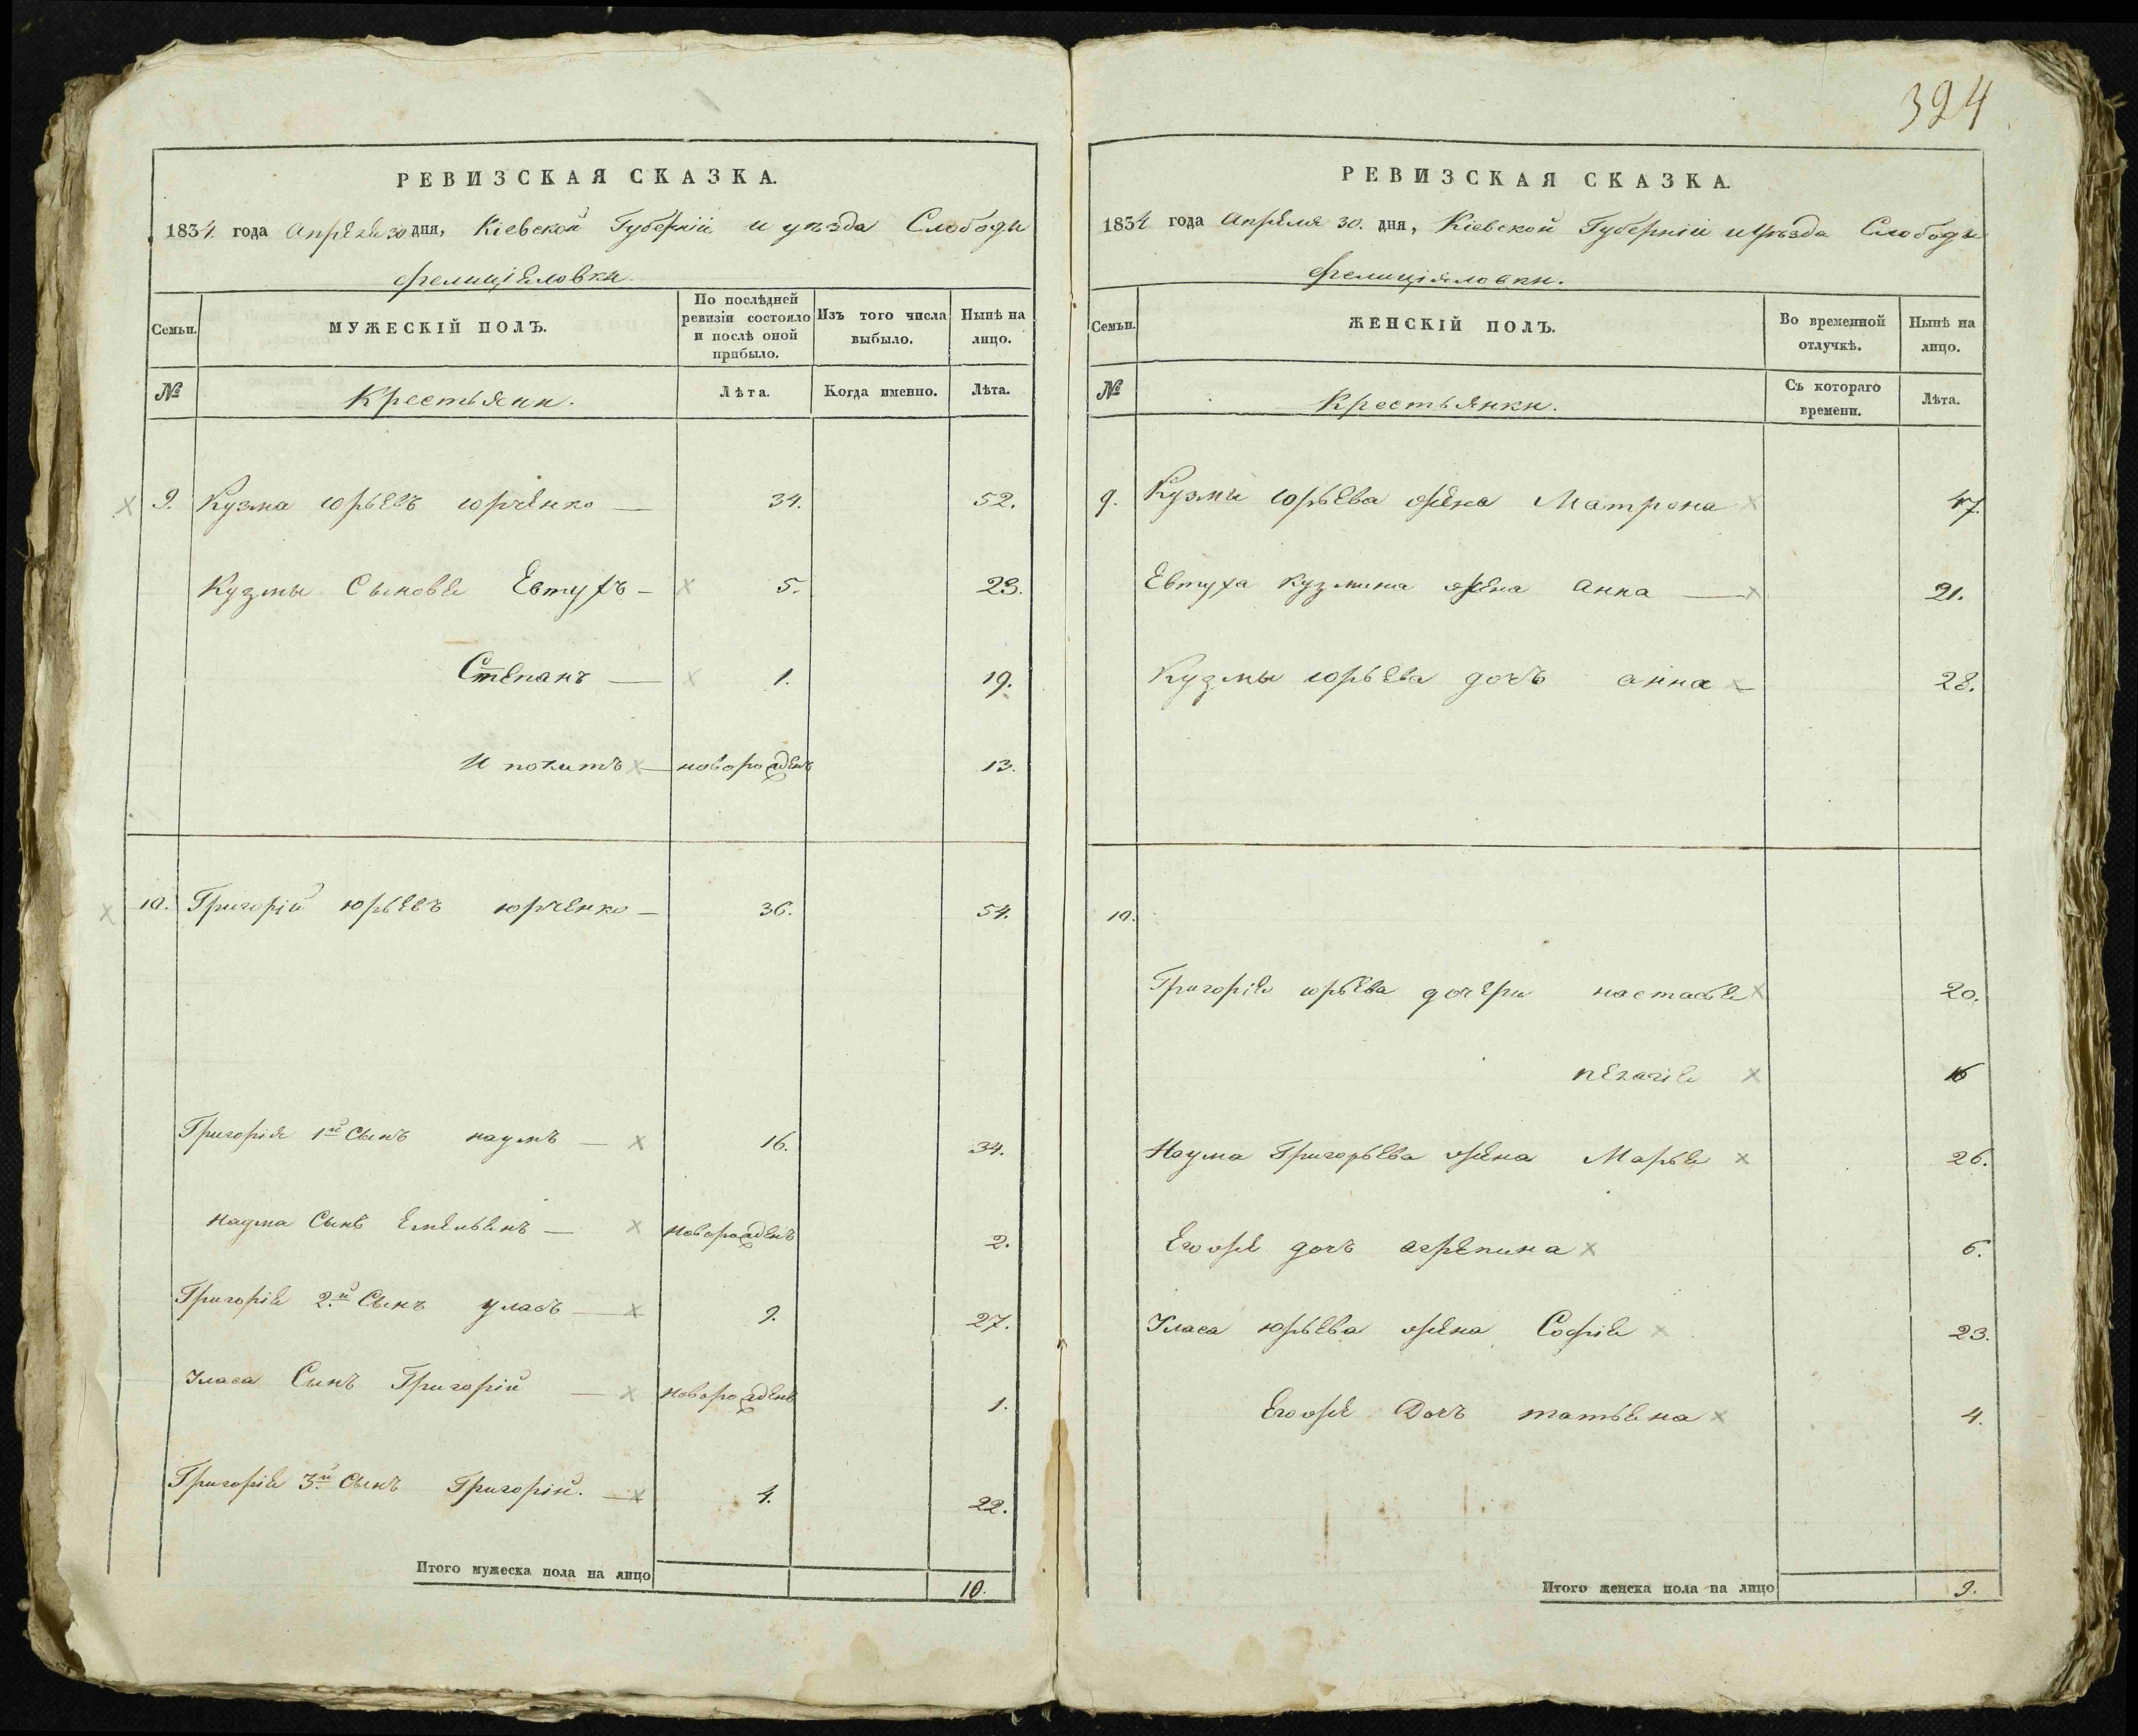 324
РЕВИЗСКАЯ СКАЗКА.
1834. года Апреля 30 дня, Кіевской Губерніи и уезда Слободы
Фелиціяловки.
Семьи. МУЖЕСКІЙ ПОЛЪ. По послѣдней ревизіи состояло и послѣ оной прибыло. Изъ того числа выбыло. Нынѣ на лицо.
№ Крестьяни. Лѣта. Когда именно. Лѣта.
9. Кузма юрьевъ юрченко — 34. 52.
Кузмы Сыновья Евтухъ — 5. 23.
Степанъ — 1. 19.
Иполитъ — новорожденъ 13.
10. Григорій юрьевъ юрченко — 36. 54.
Григорія 1й Сынъ наумъ — 16. 34.
наума Сынъ Емельянъ — новорожденъ 2.
Григорія 2.й Сынъ уласъ — 9. 27.
Уласа Сынъ Григорій — новорожденъ 1.
Григорія 3й Сынъ Григорій. — 4. 22.
Итого мужеска пола на лицо 10.
РЕВИЗСКАЯ СКАЗКА.
1834 года Апреля 30. дня, Кіевской Губерніи и уезда Слободы
Фелиціяловки.
Семьи. ЖЕНСКІЙ ПОЛЪ. Во временной отлучкѣ. Нынѣ на лицо.
№ Крестьянки. Съ котораго времени. Лѣта.
9. Кузмы юрьева жена Матрона 47.
Евтуха Кузмина жена Анна — 21.
Кузмы юрьева дочь анна — 28.
10.
Григорія юрьева дочери настасья 20.
пелагія 16
Наума Григорьева жена Марья 26.
Егоже дочь агрепина 6.
Уласа юрьева жена Софія 23.
Егоже Дочь татьяна 4.
Итого женска пола на лицо 9.